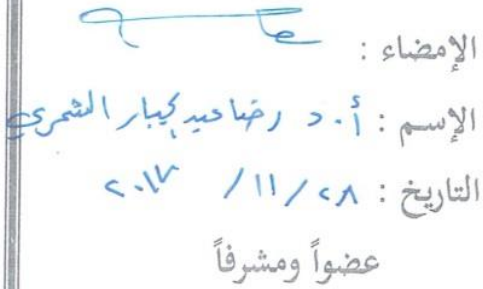 الإمضاء :
الإسم : أ.د رضا عبد الجبار الشمري
التاريخ : ٢٨ / ١١ / ٢٠١٧
عضواً ومشرفاً